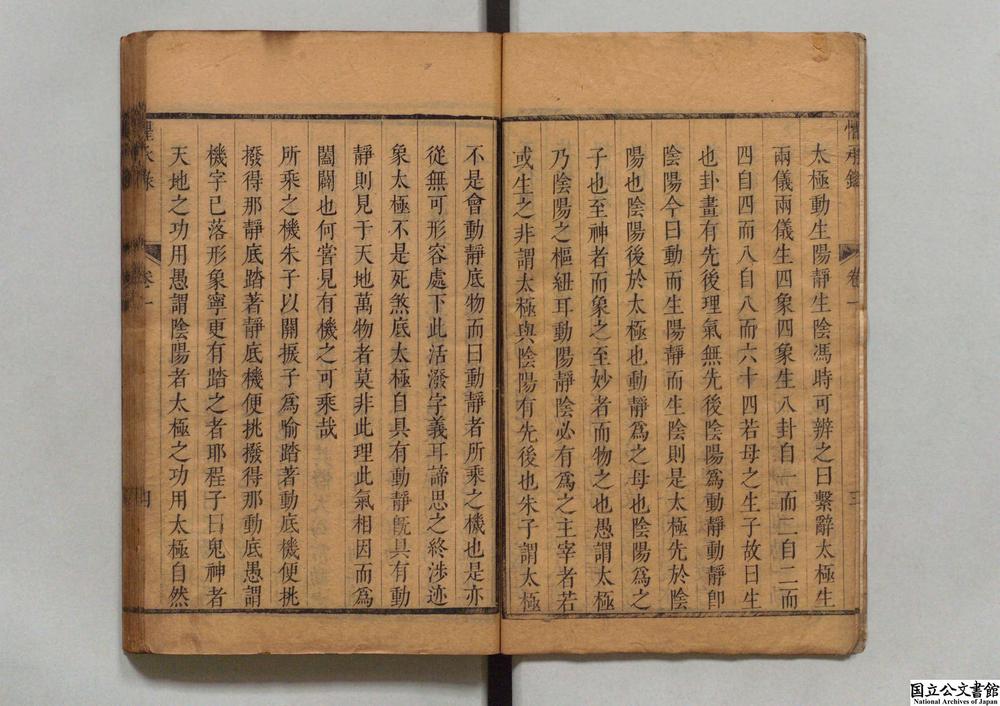 太極動生陽靜生陰馮時可辨之曰繫辭太極生
兩儀兩儀生四象四象生八卦自一而二自二而
四自四而八自八而六十四若母之生子故曰生
也卦畫有先後理氣無先後陰陽爲動靜動靜卽
陰陽今曰動而生陽靜而生陰則是太極先於陰
陽也陰陽後於太極也動靜爲之母也陰陽爲之
子也至神者而象之至妙者而物之也愚謂太極
乃陰陽之樞紐耳動陽靜陰必有爲之主宰者若
或生之非謂太極與陰陽有先後也朱子謂太極
不是會動靜底物而曰動靜者所乘之機也是亦
從無可形容處下此活潑字義耳諦思之終涉迹
象太極不是死煞底太極自具有動靜旣具有動
靜則見于天地萬物者莫非此理此氣相因而爲
闔闢也何嘗見有機之可乘哉
所乘之機朱子以關捩子爲喻踏著動底機便挑
撥得那靜底踏著靜底機便挑撥得那動底愚謂
機字已落形象寧更有踏之者耶程子曰鬼神者
天地之功用愚謂陰陽者太極之功用太極自然
卷一
三
卷一
四
国立公文書館
National Archives of Japan